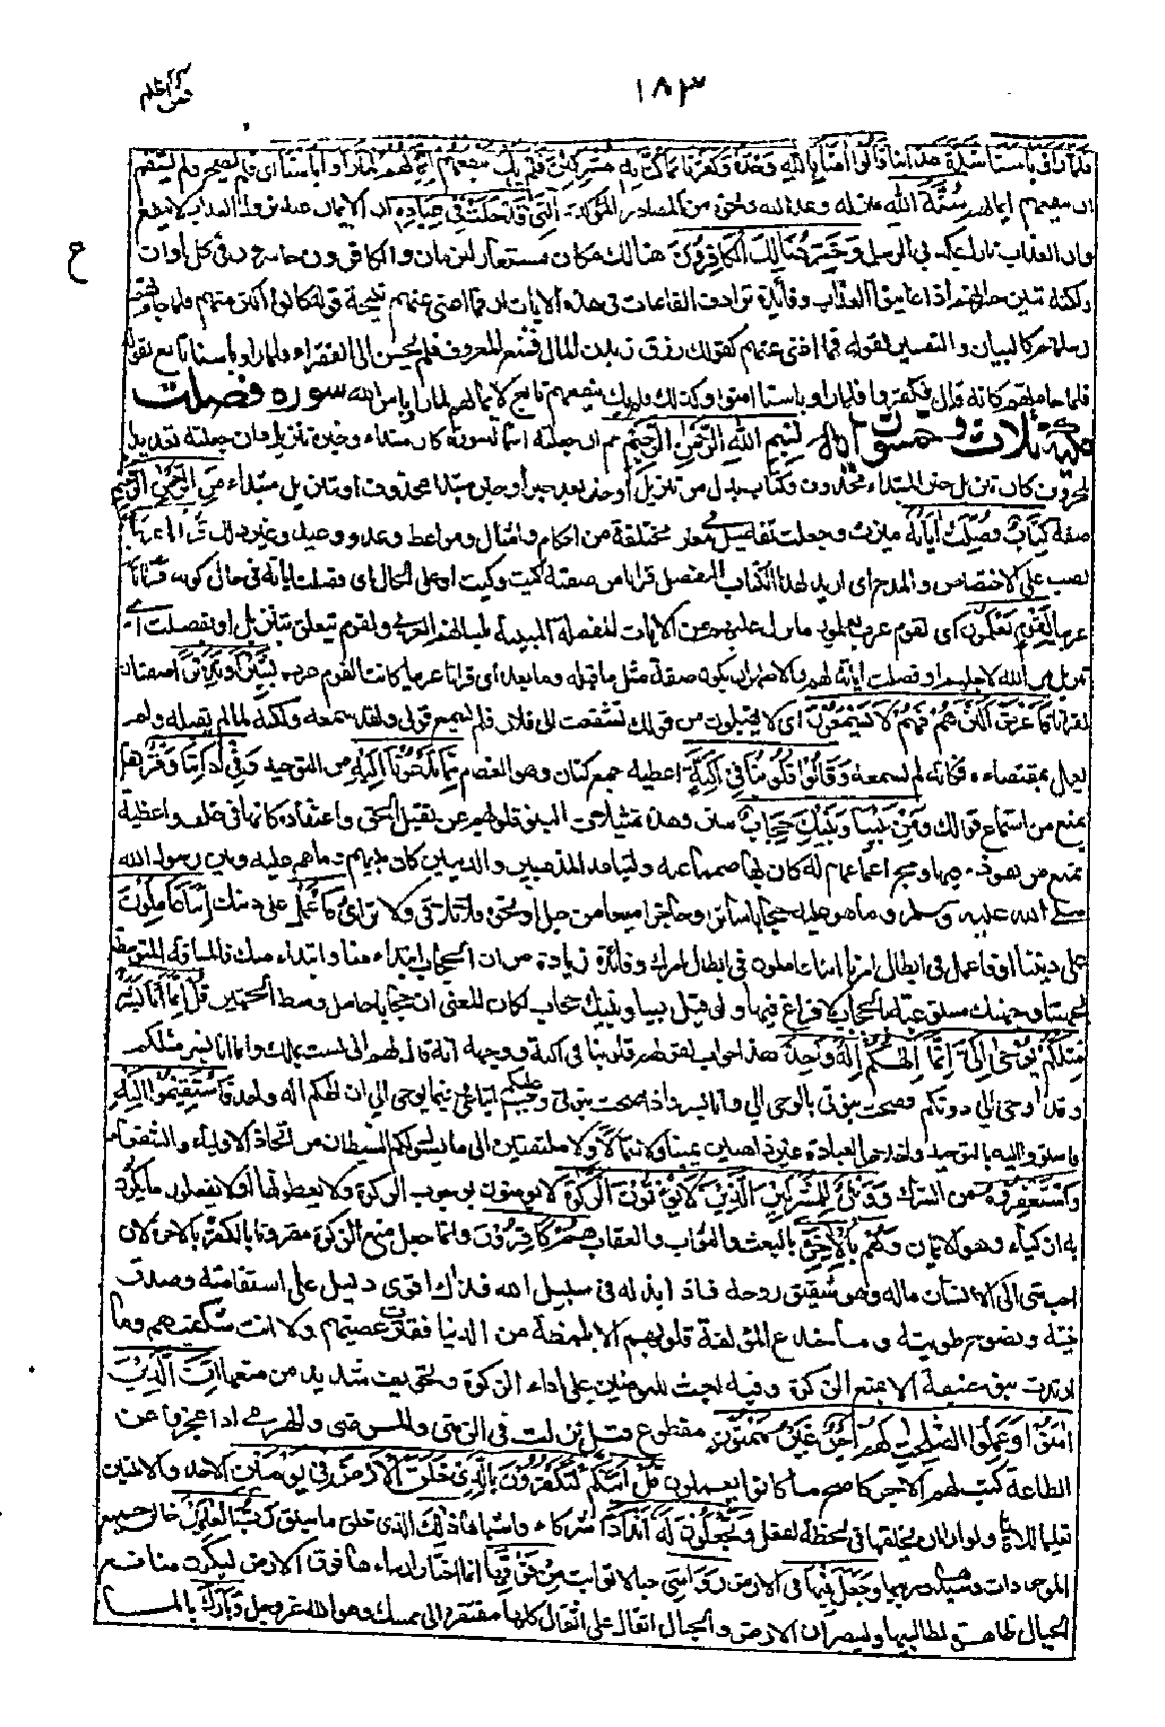 ١٨٣
فمن أظلم
فلما راوا باسنا شدة عذابنا قَالُوا آمَنَّا بِاللَّهِ وَحْدَهُ وَكَفَرْنَا بِمَا كُنَّا بِهِ مُشْرِكِينَ فَلَمْ يَكُ ينفعهم إيمانهم لما راوا باسنا اى فلم يصح ولم يستقم
ان ينفعهم ايمانهم سُنَّتَ اللَّهِ بمنزلة وعد الله ونحوه من المصادر المؤكدة الَّتِي قَدْ خَلَتْ فِي عِبَادِهِ ان الايمان عند نزول العذاب لا ينفع
وان العذاب نازل بمكذبى الرسل وَخَسِرَ هُنَالِكَ الْكَافِرُونَ هنالك مكان مستعار للزمان والكافرون خاسرون فى كل اوان
ح
ولكنه تبين خسرانهم اذا عاينوا العذاب وفائدة ترادف الفاءات فى هذه الايات ان فما اغنى عنهم نتيجة قوله كانوا اكثر منهم فلما جاءتهم
رسلهم كالبيان والتفسير لقوله فما اغنى عنهم كقولك رزق زيد المال فمنع المعروف فلم يحسن الى الفقراء وفلما راوا باسنا تابع لقوله
فلما جاءتهم كانه قال فكفروا فلما راوا باسنا امنوا وكذلك فلم يك ينفعهم تابع لايمانهم لما راوا باس الله سورة فصلت
مكية ثلاث وخمسون اية بِسْمِ اللَّهِ الرَّحْمَنِ الرَّحِيمِ حم ان جعلته اسما للسورة كان مبتداء وخبره تنزيل وان جعلته تعديدا
للحروف كان تنزيل خبر المبتداء محذوف وكتاب بدل من تنزيل او خبر بعد خبر او خبر مبتدا محذوف او تنزيل مبتداء مِنَ الرَّحْمَنِ الرَّحِيمِ
صفته كِتَابٌ فُصِّلَتْ آيَاتُهُ ميزت وجعلت تفاصيل فى معان مختلفة من احكام وامثال ومواعظ ووعد ووعيد وغير ذلك قُرْآنًا عَرَبِيًّا
نصب على الاختصاص والمدح اى اريد بهذا الكتاب المفصل قرانا من صفته كيت وكيت او على الحال اى فصلت اياته فى حال كونه قرانا
عربيا لِقَوْمٍ يَعْلَمُونَ اى لقوم عرب يعلمون ما نزل عليهم من الايات المفصلة المبينة بلسانهم العربى ولقوم يتعلق بتنزيل او بفصلت اى
تنزيل من الله لاجلهم او فصلت اياته لهم والاظهر ان يكون صفة مثل ما قبله وما بعده اى قرانا عربيا كائنا لقوم عرب بَشِيرًا وَنَذِيرًا صفتان
لقرانا فَأَعْرَضَ أَكْثَرُهُمْ فَهُمْ لَا يَسْمَعُونَ اى لا يقبلون من قولك تشفعت الى فلان فلم يسمع قولى ولقد سمعه ولكنه لما لم يقبله ولم
يعمل بمقتضاه فكانه لم يسمعه وَقَالُوا قُلُوبُنَا فِي أَكِنَّةٍ اغطية جمع كنان وهو الغطاء مِمَّا تَدْعُونَا إِلَيْهِ من التوحيد وَفِي آذَانِنَا وَقْرٌ ثقل
يمنع من استماع قولك وَمِنْ بَيْنِنَا وَبَيْنِكَ حِجَابٌ ستر وهذه تمثيلات لنبو قلوبهم عن تقبل الحق واعتقاده كانها فى غلف واغطية
تمنع من نفوذه فيها ومج اسماعهم له كان بها صمما عنه ولتباعد المذهبين والدينين كان بينهم وما هم عليه وبين رسول الله
صلى الله عليه وسلم وما هو عليه حجابا ساترا وحاجزا منيعا من جبل او نحوه فلا تلاقى ولا ترائى فَاعْمَلْ على دينك إِنَّنَا عَامِلُونَ
على ديننا او فاعمل فى ابطال امرنا اننا عاملون فى ابطال امرك وفائدة زيادة من ان الحجاب ابتداء منا وابتداء منك فالمسافة المتوسطة
لجهتنا وجهتك مستوعبة بالحجاب لا فراغ فيها ولو قيل بيننا وبينك حجاب لكان المعنى ان حجابا حاصل وسط الجهتين قُلْ إِنَّمَا أَنَا بَشَرٌ
مِثْلُكُمْ يُوحَى إِلَيَّ أَنَّمَا إِلَهُكُمْ إِلَهٌ وَاحِدٌ هذا جواب لقولهم قلوبنا فى اكنة ووجهه انه قال لهم انى لست بملك وانما انا بشر مثلكم
وقد اوحى الى دونكم فصحت نبوتى بالوحى الى وانا بشر واذا صحت نبوتى وجب عليكم اتباعى فيما يوحى الى ان الهكم اله واحد فَاسْتَقِيمُوا إِلَيْهِ
فاستووا اليه بالتوحيد واخلاص العبادة غير ذاهبين يمينا ولا شمالا ولا ملتفتين الى ما يسول لكم الشيطان من اتخاذ الاولياء والشفعاء
وَاسْتَغْفِرُوهُ من الشرك وَوَيْلٌ لِلْمُشْرِكِينَ الَّذِينَ لَا يُؤْتُونَ الزَّكَاةَ لا يؤمنون بوجوب الزكوة ولا يعطونها او لا يفعلون ما يكونون
به ازكياء وهو الايمان وَهُمْ بِالْآخِرَةِ بالبعث والثواب والعقاب هُمْ كَافِرُونَ وانما جعل منع الزكوة مقرونا بالكفر بالاخرة لان
احب شىء الى الانسان ماله وهو شقيق روحه فاذا بذله فى سبيل الله فذلك اقوى دليل على استقامته وصدق
نيته ونصوع طويته وما خدع المؤلفة قلوبهم الا بلمظة من الدنيا فقرت عصبيتهم ولانت شكيمتهم وما
ارتدت بنو حنيفة الا بمنع الزكوة وفيه بعث للمؤمنين على اداء الزكوة وتخويف شديد من منعها إِنَّ الَّذِينَ
آمَنُوا وَعَمِلُوا الصَّالِحَاتِ لَهُمْ أَجْرٌ غَيْرُ مَمْنُونٍ مقطوع قيل نزلت فى الزمنى والمرضى والهرمى اذا عجزوا عن
الطاعة كتب لهم الاجر كاصح ما كانوا يعملون قُلْ أَئِنَّكُمْ لَتَكْفُرُونَ بِالَّذِي خَلَقَ الْأَرْضَ فِي يَوْمَيْنِ الاحد والاثنين
تعليما للاناة ولو اراد ان يخلقها فى لحظة لفعل وَتَجْعَلُونَ لَهُ أَنْدَادًا شركاء واشباها ذَلِكَ الذى خلق ما سبق رَبُّ الْعَالَمِينَ خالق جميع
الموجودات وسيدها ومربيها وَجَعَلَ فِيهَا فى الارض رَوَاسِيَ جبالا ثوابت مِنْ فَوْقِهَا انما اختار ارساءها فوق الارض ليكون منافع
الجبال ظاهرة لطالبيها وليبصر ان الارض والجبال اثقال على اثقال كلها مفتقرة الى ممسك وهو الله عز وجل وَبَارَكَ بالماء